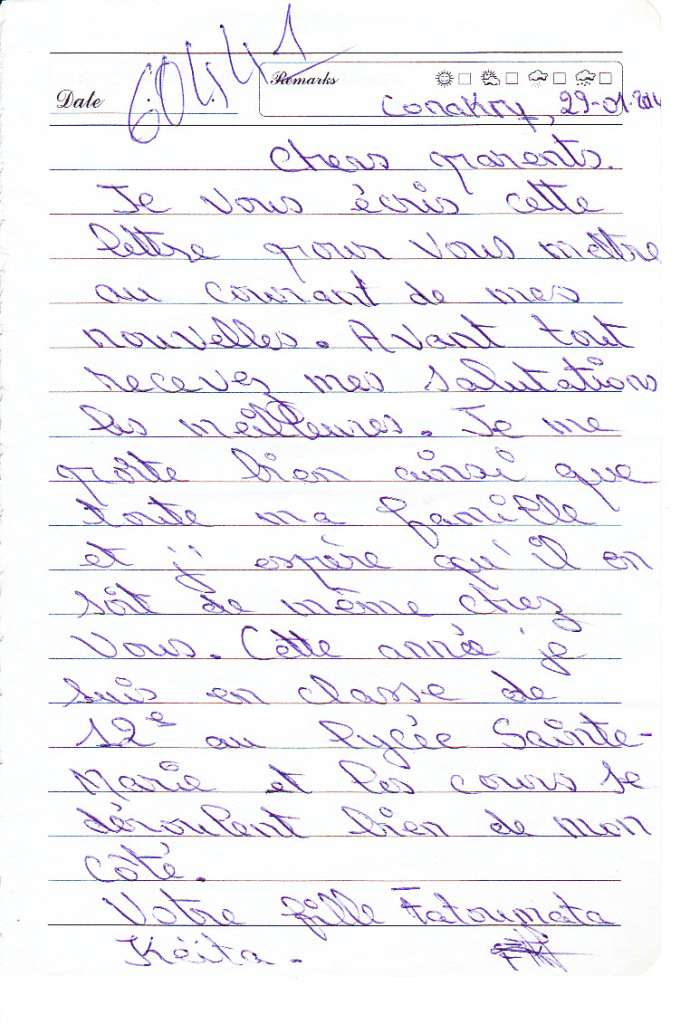 Date
Remarks
Conakry, 29-01.2014
Chers parents.
Je vous écris cette
lettre pour vous mettre
au courant de mes
nouvelles. Avant tout
recevez mes salutations
les meilleures. Je me
porte bien ainsi que
toute ma famille
et j'espère qu'il en
soit de même chez
vous. Cette année je
suis en classe de
12e au lycée Sainte-
Marie et les cours se
déroulent bien de mon
côté.
Votre fille Fatoumata
Kéita.